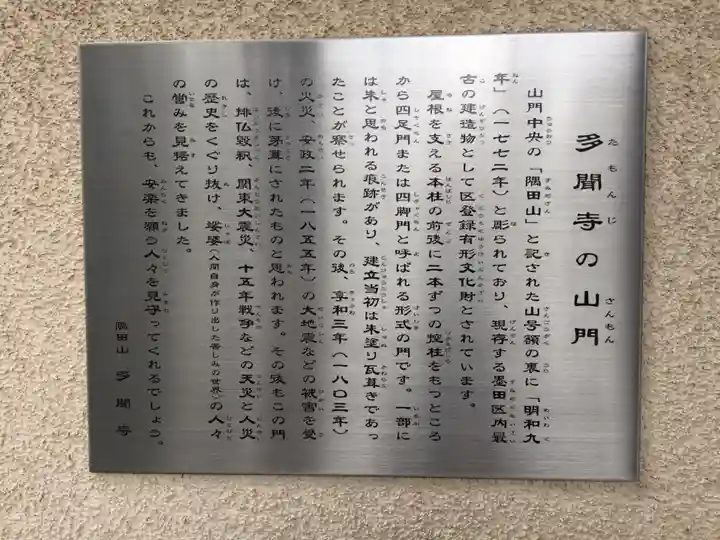 たもんじ さんもん
多聞寺の山門
山門中央の「隅田山」と記された山号額の裏に「明和九
年」(一七七二年)と彫られており、現存する墨田区内最
古の建造物として区登録有形文化財とされています。
屋根を支える本柱の前後に二本ずつの控柱をもつところ
から四足門または四脚門と呼ばれる形式の門です。一部に
は朱と思われる痕跡があり、建立当初は朱塗り瓦葺きであっ
たことが察せられます。その後、享和三年(一八〇三年)
の火災、安政二年(一八五五年)の大地震などの被害を受
け、後に茅葺にされたものと思われます。その後もこの門
は、排仏毀釈、関東大震災、十五年戦争などの天災と人災
の歴史をくぐり抜け、娑婆(人間自身が作り出した苦しみの世界)の人々
の営みを見据えてきました。
これからも、安楽を願う人々を見守ってくれるでしょう。
隅田山 多聞寺